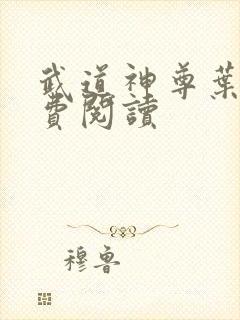 武道神尊葉
費閱讀
穆魯